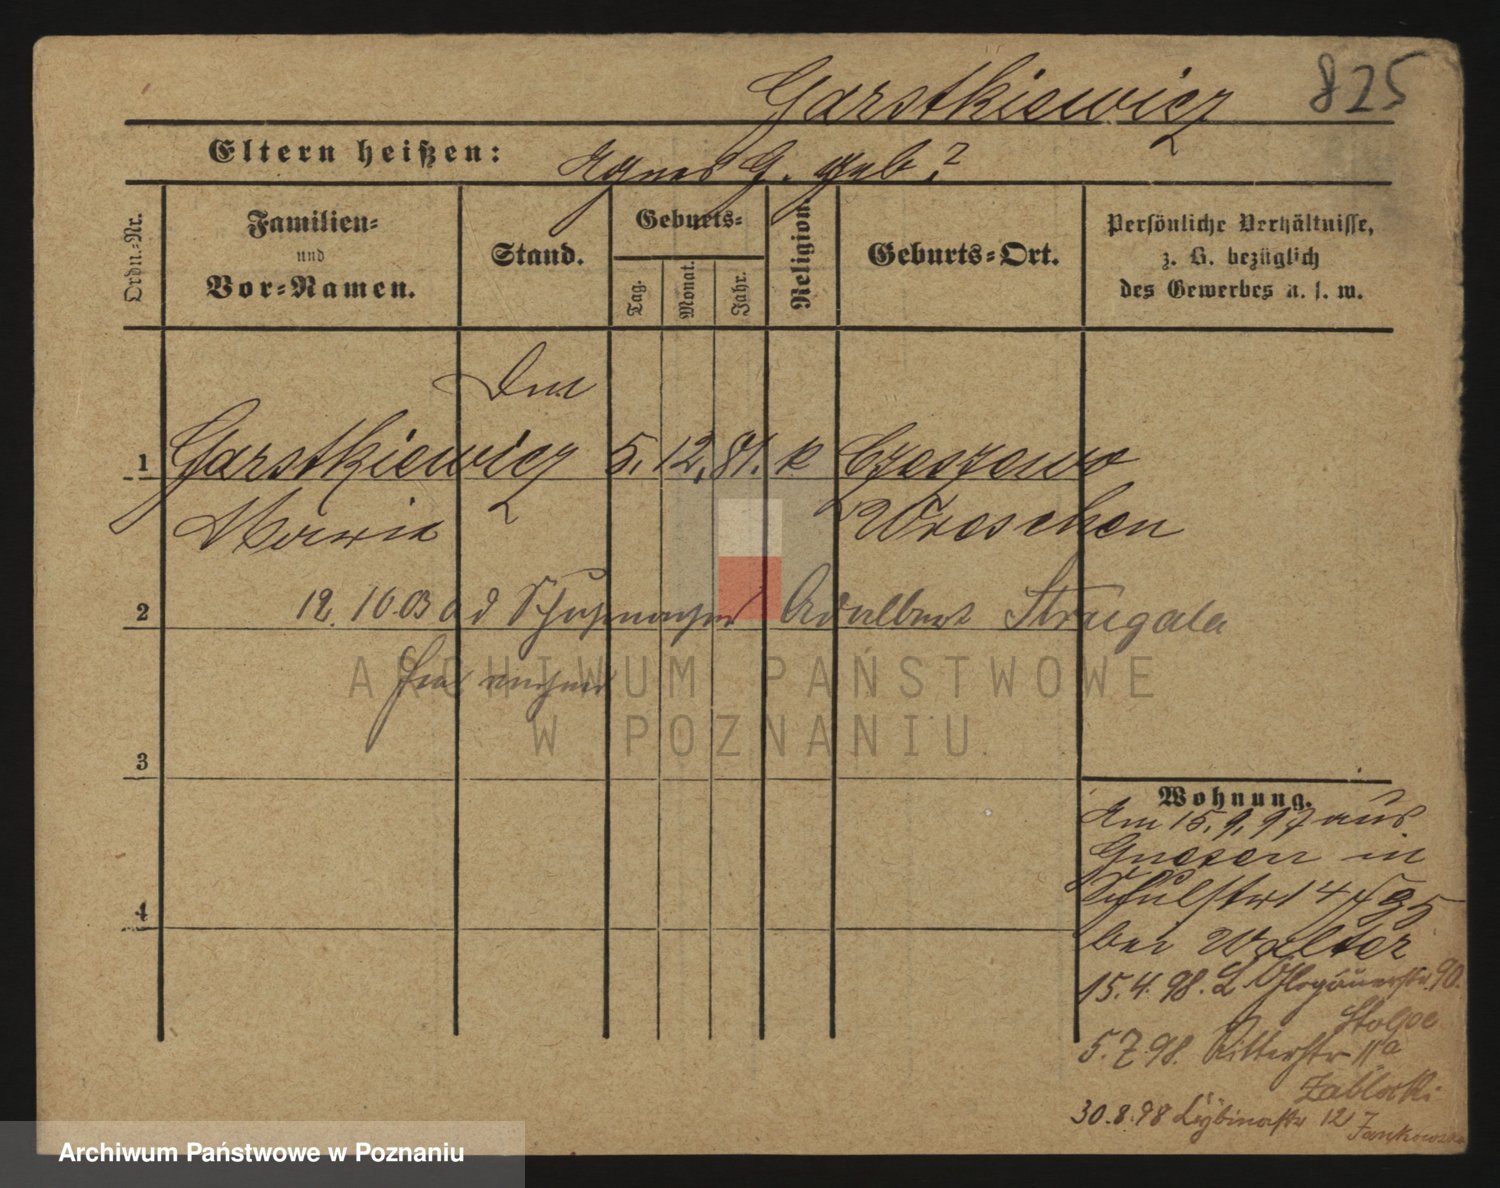 Garstkiewicz 825
Eltern heißen: Agnes G. geb?
Ordn.-Nr.
Familien-
und
Vor-Namen.
Stand.
Geburts-
Tag.
Monat.
Jahr.
Religion.
Geburts-Ort.
Persönliche Verhältnisse,
z. B. bezüglich
des Gewerbes u. s. w.
1 Garstkiewicz 5. 12. 81. k Czeszewo
Maria Wreschen
2 12. 10. 03 Schuhmacher Adalbert Strugala
3
4
Wohnung.
Am 15. 9. 97 aus
Gnesen in
Schulstr 14
bei Walter
15. 4. 98. Glogauerstr. 90.
Stolpe
5. 7. 98. Ritterstr 11a
Zablocki
30. 8. 98 Lybinastr 12 Jankowska
ARCHIWUM PAŃSTWOWE
W POZNANIU
Archiwum Państwowe w Poznaniu